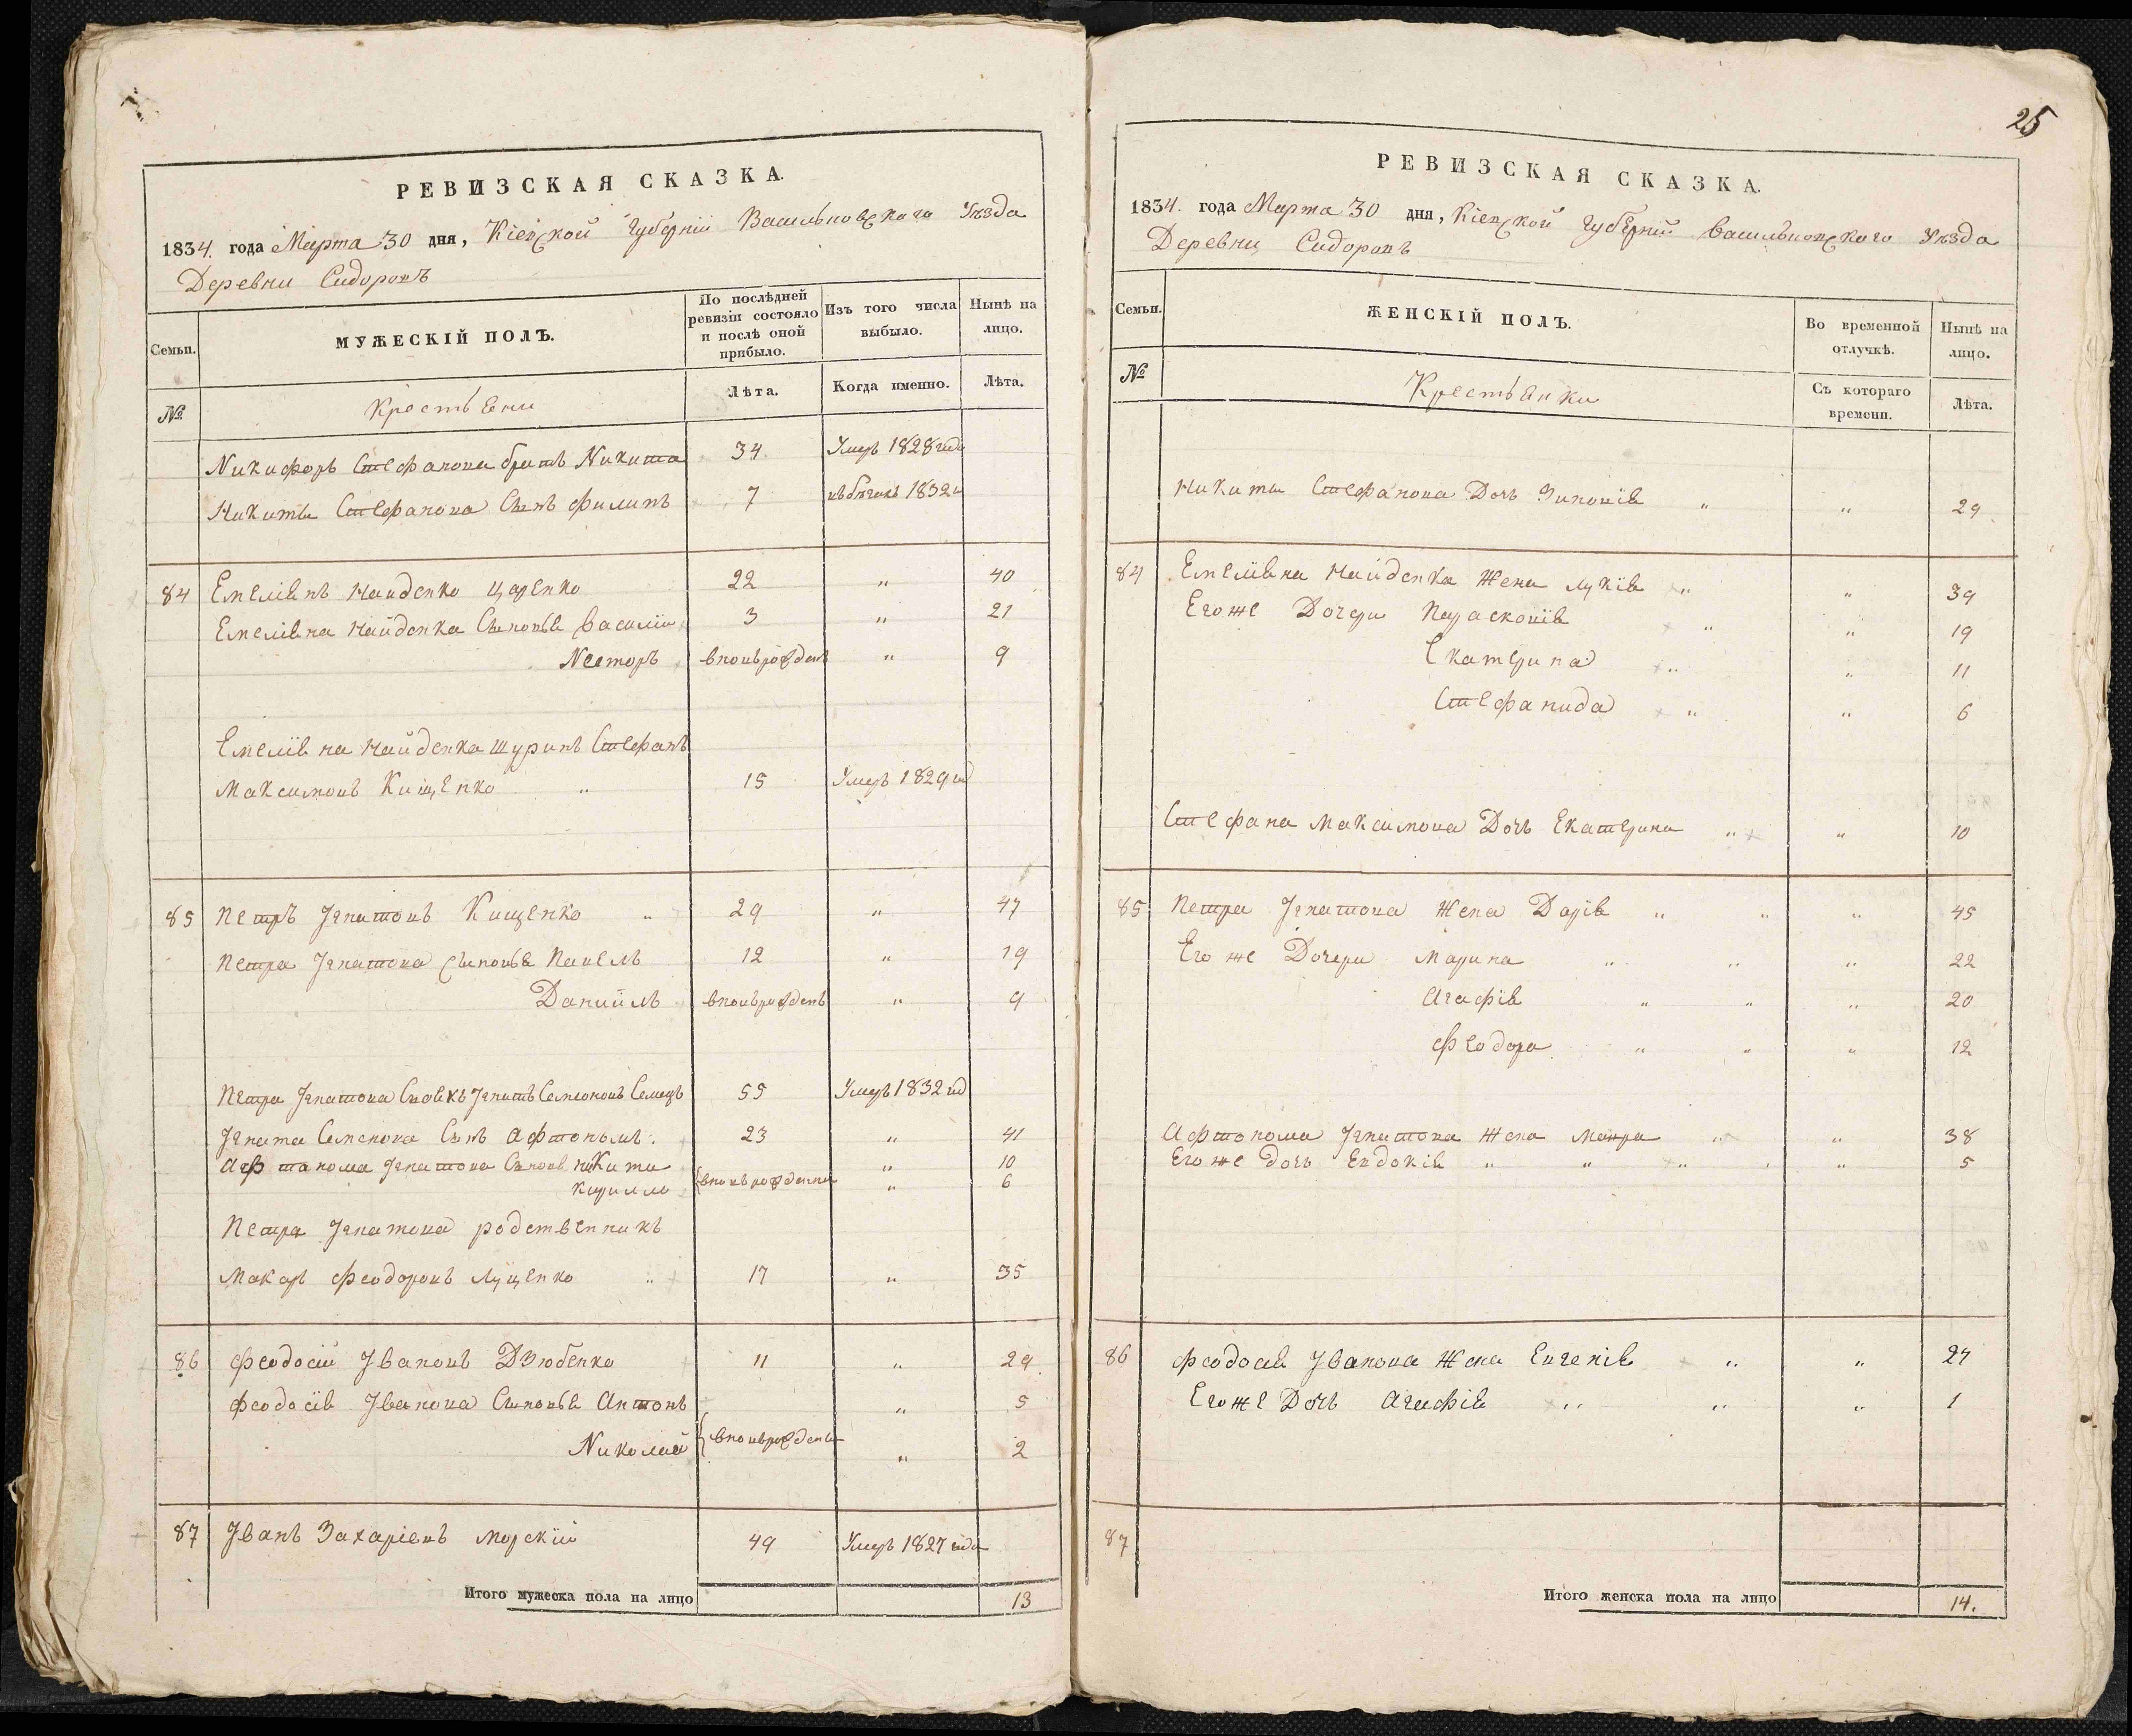 РЕВИЗСКАЯ СКАЗКА.
1834. года Марта 30 дня, Кіевской Губерніи Васильковскаго Уѣзда
Деревни Сидоровъ
Семьи.
МУЖЕСКІЙ ПОЛЪ.
По послѣдней ревизіи состояло и послѣ оной прибыло.
Изъ того числа выбыло.
Нынѣ на лицо.
№
Крестьяни
Лѣта.
Когда именно.
Лѣта.
Никифоръ Стефанова братъ Никита 34 Умеръ 1828 года
Никиты Стефанова Сынъ Филипъ 7 въ бѣгахъ 1832
84 Емеліянъ Найденко Царенко 22 " 40
Емеліяна Найденка Сыновья Василій 3 " 21
Несторъ вновьрожденъ " 9
Емеліяна Найденка Шуринъ Стефанъ
Максимовъ Кищенко " 15 Умеръ 1829
85 Петръ Игнатовъ Кищенко " 29 " 47
Петра Игнатова сыновья Павелъ 12 " 19
Даниилъ вновьрожденъ " 9
Петра Игнатова Игнатъ Семоновъ 55 Умеръ 1832
Игната Семенова Сынъ Афтономъ 23 " 41
Афтонома Игнатова Сынов. Никита " 10
Кирилло {вновьрожденни " 6
Петра Игнатова родственникъ
Макаръ Феодоровъ Луценко " 17 " 35
86 Феодосій Ивановъ Дзюбенко 11 " 29
Феодосія Иванова Сыновья Антонъ " 5
Николай {вновьрожденны " 2
87 Иванъ Захаріевъ Морскій 49 Умеръ 1827 года
Итого мужеска пола на лицо 13
25
РЕВИЗСКАЯ СКАЗКА.
1834. года Марта 30 дня, Кіевской Губерніи Васильковскаго Уѣзда
Деревни Сидоровъ
Семьи.
ЖЕНСКІЙ ПОЛЪ.
Во временной отлучкѣ.
Нынѣ на лицо.
№
Крестьянки
Съ котораго времени.
Лѣта.
Никиты Стефанова Дочь Зиновія " " 29
84 Емеліяна Найденка Жена Лукія " " 39
Егоже Дочери Парасковія " " 19
Екатерина " " 11
Стефанида " " 6
Стефана Максимова Дочь Екатерина " " 10
85 Петра Игнатова Жена Дарія " " " 45
Его же Дочери Марина " " " 22
Агафія " " " 20
Феодора " " " 12
Афтонома Игнатова Жена Мавра " " 38
Его же Дочь Евдокія " " " " 5
86 Феодосія Иванова Жена Евгенія " " 27
Егоже Дочь Агафія " " " 1
87
Итого женска пола на лицо 14.